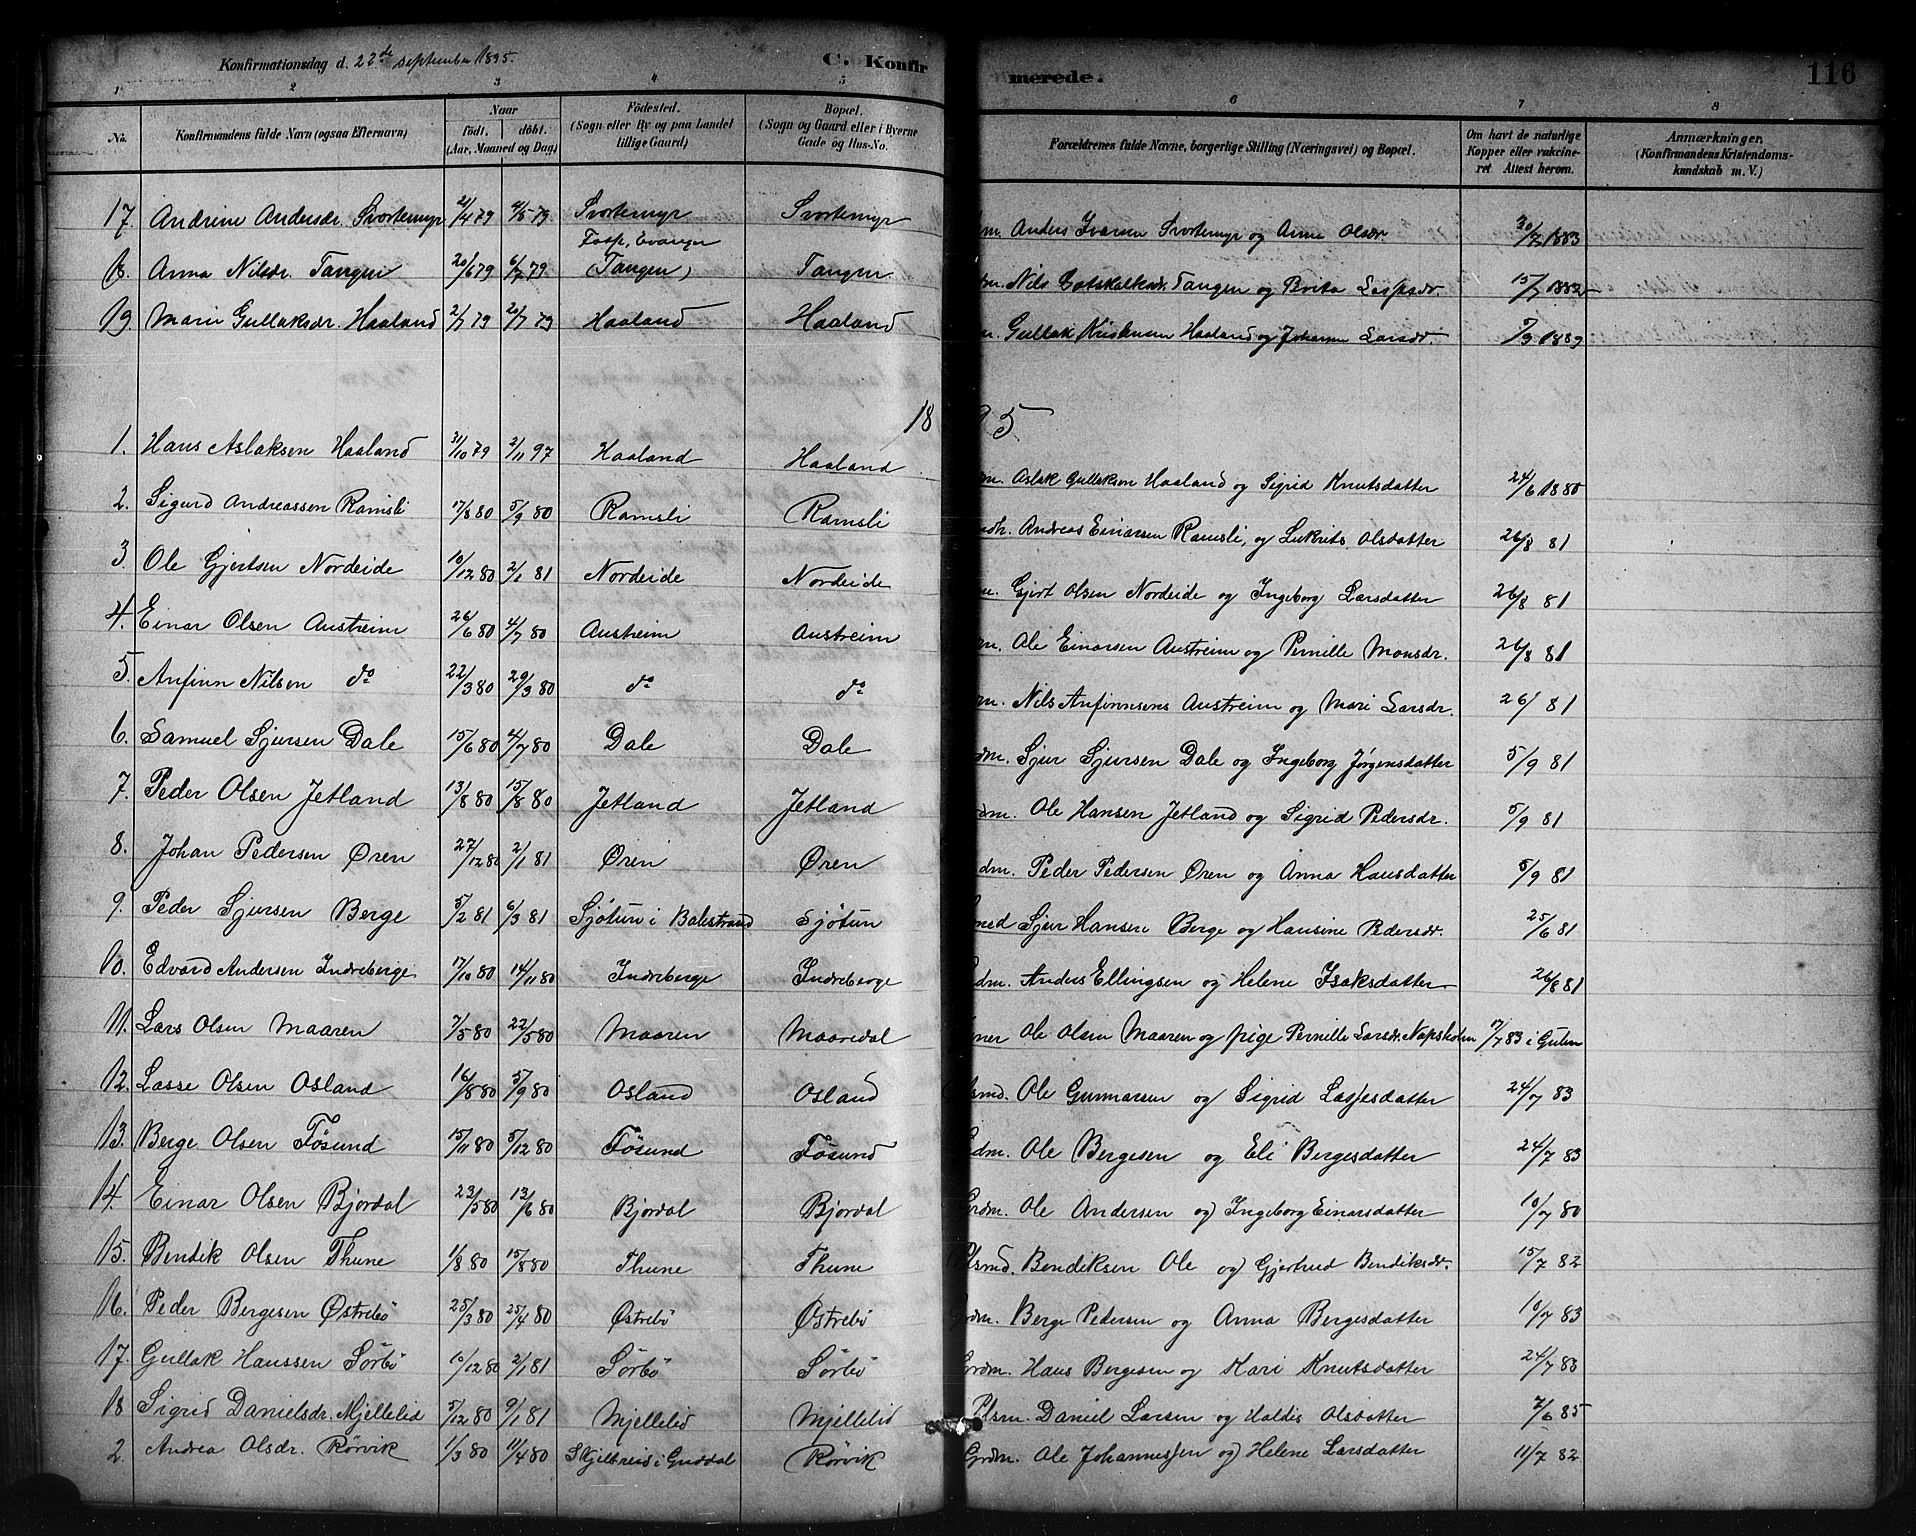 Konfirmationsdag d. 22de september 1895. C. Konfirmerede. 116
1 2 3 4 5 6 7 8
No. Konfirmandens fulde Navn (ogsaa Efternavn) Naar födt. döbt. (Aar, Maaned og Dag) Födested. (Sogn eller By og paa Landet tillige Gaard) Bopæl. (Sogn og Gaard eller i Byerne Gade og Hus-No. Forældrenes fulde Navne, borgerlige Stilling (Næringsvei) og Bopæl. Om havt de naturlige Kopper eller vakcineret Attest herom. Anmærkninger. (Konfirmandens Kristendomskundskab m. V.)
17. Andrine Andersdr. Svortemyr 21/4 79 4/5 79 Svortemyr Svortemyr m. Anders Ivarsen Svortemyr og Anne Olsdr. 30/7 1883
18. Anna Nilsdr. Tangen 20/6 79 6/7 79 Fosp. Evanger (Tangen) Tangen dm. Nils Gotskalksen Tangen og Brita Lassesdr. 15/7 1882
19. Marie Gullaksdr. Haaland 2/7 79 20/7 79 Haaland Haaland m. Gullak Kristensen Haaland og Johanne Larsdr. 5/9 1889
1895
1. Hans Aslaksen Haaland 31/10 79 2/11 97 Haaland Haaland dm. Aslak Gullaksen Haaland og Sigrid Knutsdatter 24/6 1880
2. Sigurd Andreassen Ramsli 17/8 80 5/9 80 Ramsli Ramsli Andreas Einarsen Ramsli, og Lukrits Olsdatter 26/8 81
3. Ole Gjertsen Nordeide 10/12 80 2/1 81 Nordeide Nordeide m. Gjert Olsen Nordeide og Ingeborg Larsdatter 26/8 81
4. Einar Olsen Austreim 26/6 80 4/7 80 Austreim Austreim m. Ole Einarsen Austreim og Pernille Monsdr. 26/8 81
5. Anfinn Nilsen do 22/3 80 29/3 80 do do m. Nils Anfinnsens Austreim og Mari Larsdr. 26/ 81
6. Samuel Sjursen Dale 15/6 80 4/7 80 Dale Dale dm. Sjur Sjursen Dale og Ingeborg Jørgensdatter 5/9 81
7. Peder Olsen Jetland 13/8 80 15/8 80 Jetland Jetland rdm. Ole Hansen Jetland og Sigrid Pedersdr. 5/9 81
8. Johan Pedersen Øren 27/12 80 2/1 81 Øren Øren dm. Peder Pedersen Øren og Anna Hansdatter 5/9 81
9. Peder Sjursen Berge 5/2 81 6/3 81 Sjötun i Balestrand Sjötun med Sjur Hansen Berge og Hansine Pedersdr. 25/6 81
10. Edvard Andersen Indreberge 17/10 80 14/11 80 Indreberge Indreberge dm. Anders Ellingsen og Helene Isaksdatter 26/8 81
11. Lars Olsen Maaren 7/5 80 22/5 80 Maaren Maaredal ner Ole Olsen Maaren og pige Pernille Larsdr. Napsholm 17/7 83 i Gulen
12. Lasse Olsen Osland 16/8 80 5/9 80 Osland Osland lsmd. Ole Gunnarsen og Sigrid Lassesdatter 24/7 83
13. Berge Olsen Fösund 15/11 80 5/12 80 Fösund Fösund dm. Ole Bergesen og Eli Bergesdatter 24/7 83
14. Einar Olsen Bjordal 23/5 80 13/6 80 Bjordal Bjordal Grdm. Ole Andersen og Ingeborg Einarsdatter 10/7 80
15. Bendik Olsen Thune 1/8 80 15/8 80 Thune Thune Plsmd. Bendiksen Ole og Gjertrud Bendiksdr. 15/7 82
16. Peder Bergesen Østrebö 25/3 80 25/4 80 Østrebö Østrebö Grdm. Berge Pedersen og Anna Bergesdatter 10/7 83
17. Gullak Hanssen Sörbö 10/12 80 2/1 81 Sörbö Sörbö Grdm. Hans Bergesen og Kari Knutsdatter 24/7 83
18 Sigrid Danielsdr. Mjellelid 5/12 80 9/1 81 Mjellelid Mjellelid Plsm. Daniel Larsen og Haldis Olsdatter 7/6 85
2. Andrea Olsdr. Rörvik 1/3 80 11/4 80 Skjelbreid i Guddal Rörvik Grdm. Ole Johannessen og Helene Larsdatter 11/7 82